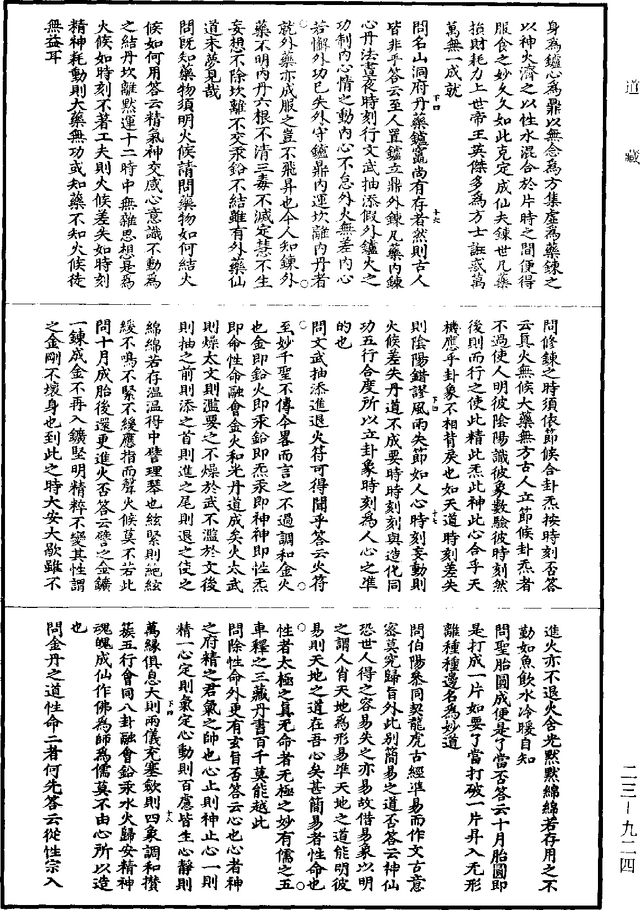 道藏
身為鑪心為鼎以無念為方集虛為藥鍊之
以神火濟之以性水混合於片時之間便得
服食之妙久久如此克定成仙夫鍊世凡藥
抬財耗力上世帝王英傑多為方士誑惑萬
萬無一成就
下四
十六
問名山洞府丹藥鑪竈尚有存者然則古人
皆非乎答云至人置鑪立鼎外鍊凡藥內鍊
心丹法晝夜時刻行文武抽添假外鑪火之
功制內心情之動內心不怠外火無差內心
若懈外功已失外守鑪鼎內運坎離內丹者
就外藥亦成服之豈不飛昇也今人知鍊外
藥不明內丹六根不清三毒不滅定慧不生
妄想不除坎離不交汞鉛不結雖有外藥仙
道未夢見哉
問既知藥物須明火候請問藥物如何結火
候如何用答云精氣神交感心意識不動為
之結丹坎離默運十二時中無雜思想是為
火候如時刻不著工夫則火候差失如時刻
精神耗動則大藥無功或知藥不知火候徒
無益耳
問修鍊之時須依節候合卦炁按時刻否答
云真火無候大藥無方古人立節候卦炁者
不過使人明彼陰陽識彼象數驗彼時刻然
後則而行之使此精此炁此神此心合乎天
機應乎卦象不相背戾也如天道時刻差失
下四
十七
則陰陽錯謬風雨失節如人心時刻妄動則
火候差失丹道不成要時時刻刻與造化同
功五行合度所以立卦象時刻為人心之準
的也
問文武抽添進退火符可得聞乎答云火符
至妙千聖不傳今畧而言之不過調和金火
也金即鉛火即汞鉛即炁汞即神神即性炁
即命性命融會金火和光丹道成矣火太武
則燥太文則濫要之不燥於武不濫於文後
則抽之前則添之首則進之尾則退之使之
綿綿若存溫溫得中譬理琴也絃緊則絕絃
緩不鳴不緊不緩應指而聲火候莫不若此
問十月成胎後還更進火否答云譬之金鑛
一鍊成金不再入鑛堅明精粹不變其性謂
之金剛不壞身也到此之時大安大歇雖不
進火亦不退火含光默默綿綿若存用之不
動如魚飲水冷暖自知
問聖胎圓成便是了當否答云十月胎圓即
是打成一片如要了當打破一片昇入無形
離種種邊名為妙道
問伯陽叅同契龍虎古經準易而作文古意
密莫究歸旨外此別簡易之道否答云神仙
恐世人得之容易失之亦易故借易象以明
之謂人肖天地為形易準天地之道能明彼
易則天地之道在吾心矣甚簡易者性命也
性者太極之真无命者無極之妙有儒之五
車釋之三藏丹書百千莫能越此
問除性命外更有玄旨否答云心也心者神
之府精之君氣之帥也心止則神止心一則
精一心定則氣定心動則百慮皆生心靜則
下四
十八
萬緣俱息大則兩儀充塞歛則四象調和攢
蔟五行會同八卦融會鉛汞水火歸安精神
魂魄成仙作佛為師為儒莫不由心所以造
也
問金丹之道性命二者何先答云從性宗入
二三—九二四